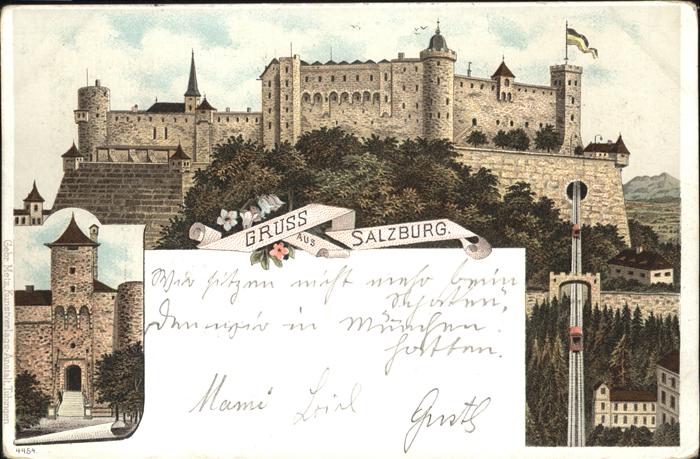 GRUSS AUS SALZBURG.
Wir sitzen nicht mehr beim
den wir in München
hatten.
Mami
Gustl
Gebr. Metz, Kunstverlags-Anstalt, Tübingen
4454.